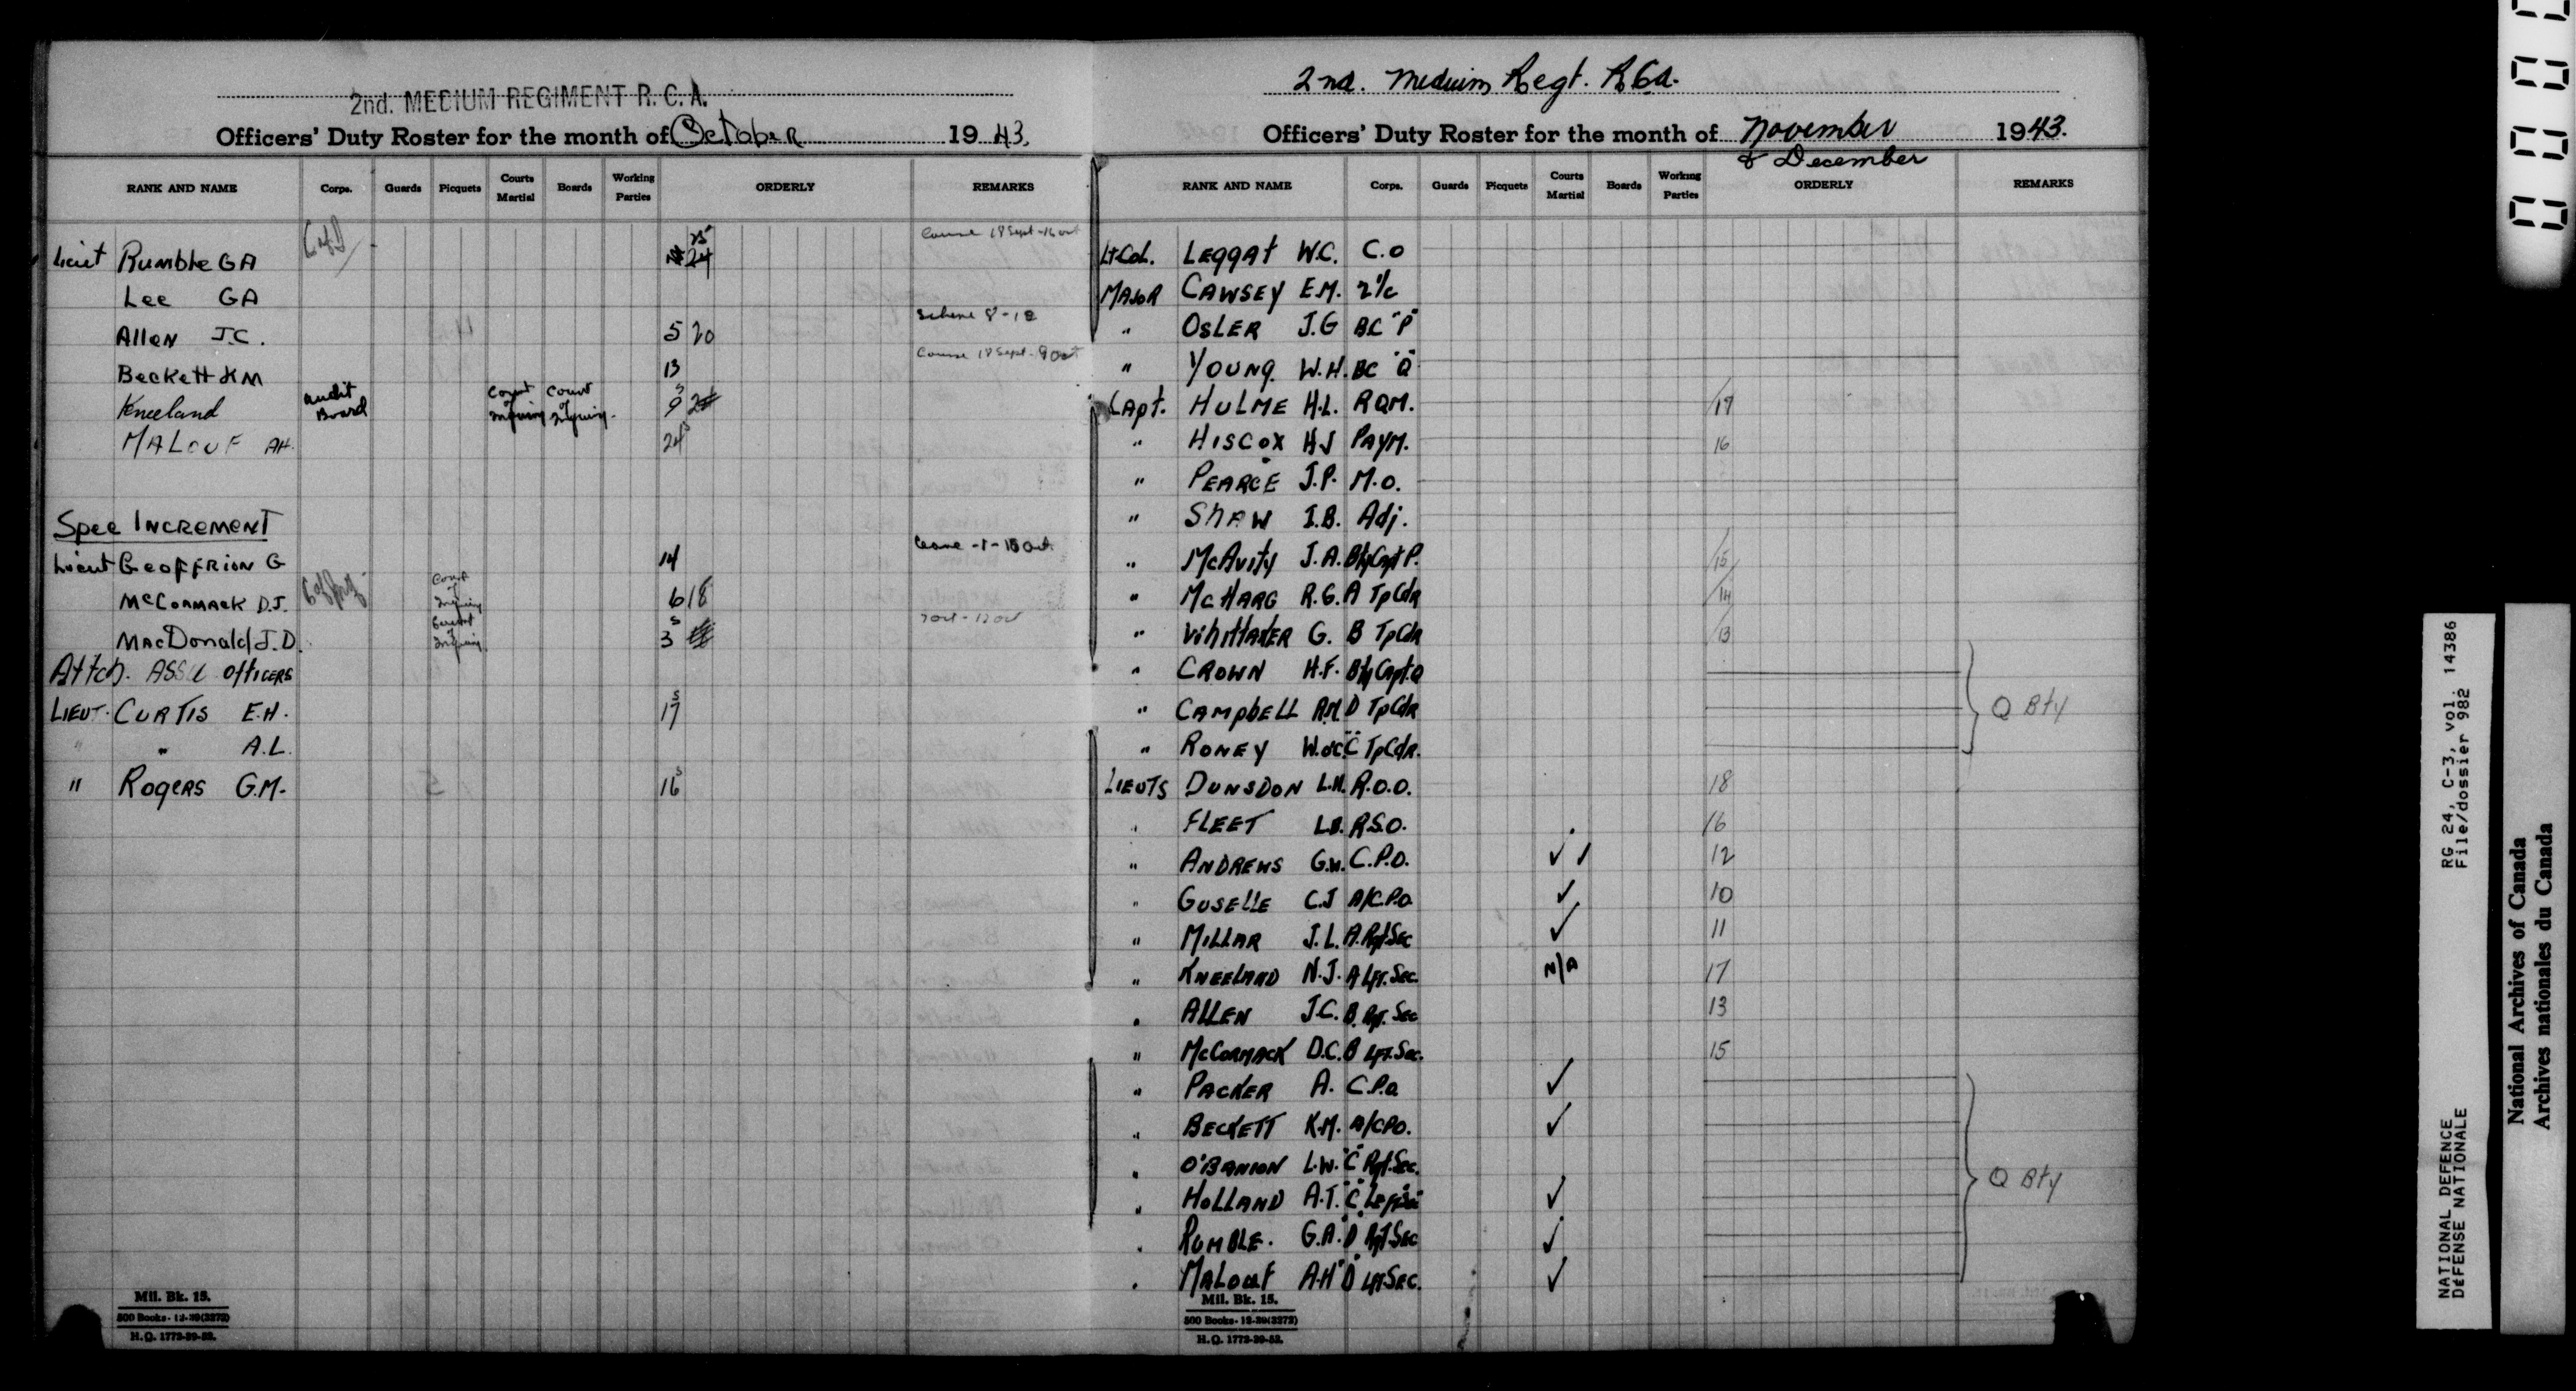 2nd. MEDIUM REGIMENT R.C.A.
Officers' Duty Roster for the month of October 1943.
RANK AND NAME Corps. Guards Picquets Courts Martial Boards Working Parties ORDERLY REMARKS
Lieut Rumble GA 25 24 Course 18 Sept - 16 oct
Lee GA
Allen J.C. 5 20 Scheme 8-12
Beckett KM 13 Course 18 Sept - 9 Oct
Kneeland Audit Board Court of Inquiry Court of Inquiry. 9 24
MALOUF AH. 24
Spec INCREMENT
Lieut Geoffrion G 14 Leave -1-15 Oct
McCormack D.J. Court of Inquiry 6 18
MacDonald J.D. Court of Inquiry 3 7 Oct - 12 Oct
Attch. ASSU Officers
LIEUT. CURTIS E.H. 17
" " A.L.
" Rogers G.M. 16
Mil. Bk. 15.
500 Books-12-39(3272)
H.Q. 1772-39-52.
2nd. Medium Regt. RCA.
Officers' Duty Roster for the month of November 1943.
& December
RANK AND NAME Corps. Guards Picquets Courts Martial Boards Working Parties ORDERLY REMARKS
Lt-Col. LEGGAT W.C. C.O
MAJOR CAWSEY E.M. 2i/c
" OSLER J.G BC "P"
" YOUNG. W.H. BC "Q"
CAPT. HULME H.L. RQM. 17
" HISCOX HJ PAYM. 16
" PEARCE J.P. M.O.
" SHAW I.B. Adj.
" McAvity J.A. Bty Capt P. 15
" McHARG R.G. A TpCdr 14
" WhittAKER G. B TpCdr 13
" CROWN H.F. Bty Capt. Q
" CAMPbELL R.M D TpCdr Q Bty
" RONEY W. "C" TpCdr.
LIEUTS DUNSDON L.H. R.O.O. 18
" FLEET L.B. R.S.O. 16
" ANDREWS G.W. C.P.O. ✓ ✓ 12
" GUSELLE C.J A/C.P.O ✓ 10
" MILLAR J.L. A. Rgt. Sec ✓ 11
" KNEELAND N.J. A Lft. Sec. N/A 17
" ALLEN J.C. B. Rgt. Sec 13
" McCORMACK D.C. B Lft. Sec. 15
" PACKER A. C.P.O ✓
" BECKETT K.M. A/CPO. ✓
" O'BANION L.W. "C" Rgt. Sec.
" HOLLAND A.T. "C" Left Sec ✓ Q Bty
" RUMBLE. G.A. "D" Rgt Sec ✓
" MALOUF A.H "D" Lft Sec. ✓
Mil. Bk. 15.
500 Books-12-39(3272)
H.Q. 1772-39-52.
NATIONAL DEFENCE RG 24, C-3, vol. 14386
DÉFENSE NATIONALE File/dossier 982
National Archives of Canada
Archives nationales du Canada